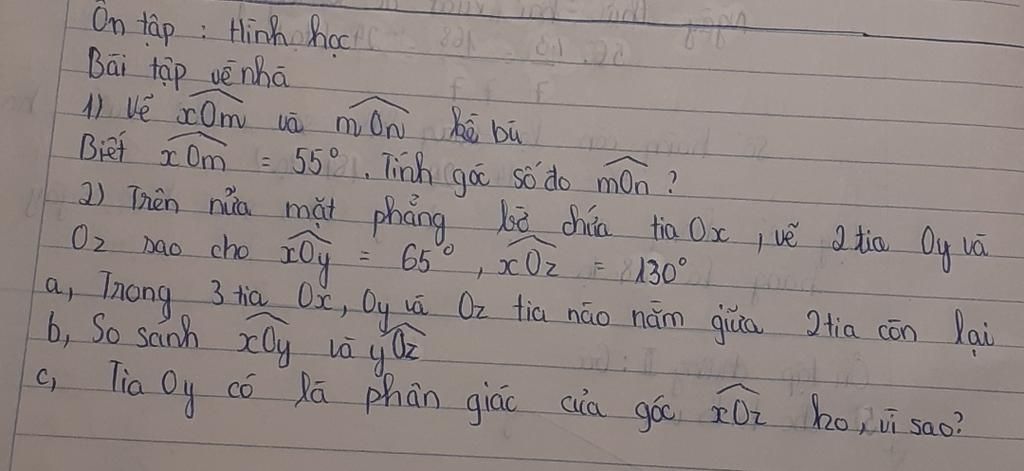 Ôn tập : Hình học
Bài tập về nhà
1) Vẽ xOm và mOn kề bù
Biết xOm = 55°. Tính góc số đo mOn ?
2) Trên nửa mặt phẳng bờ chứa tia Ox, vẽ 2 tia Oy và
Oz sao cho xOy = 65°, xOz = 130°
a, Trong 3 tia Ox, Oy và Oz tia nào nằm giữa 2 tia còn lại
b, So sánh xOy và yOz
c, Tia Oy có là phân giác của góc xOz ko, vì sao?